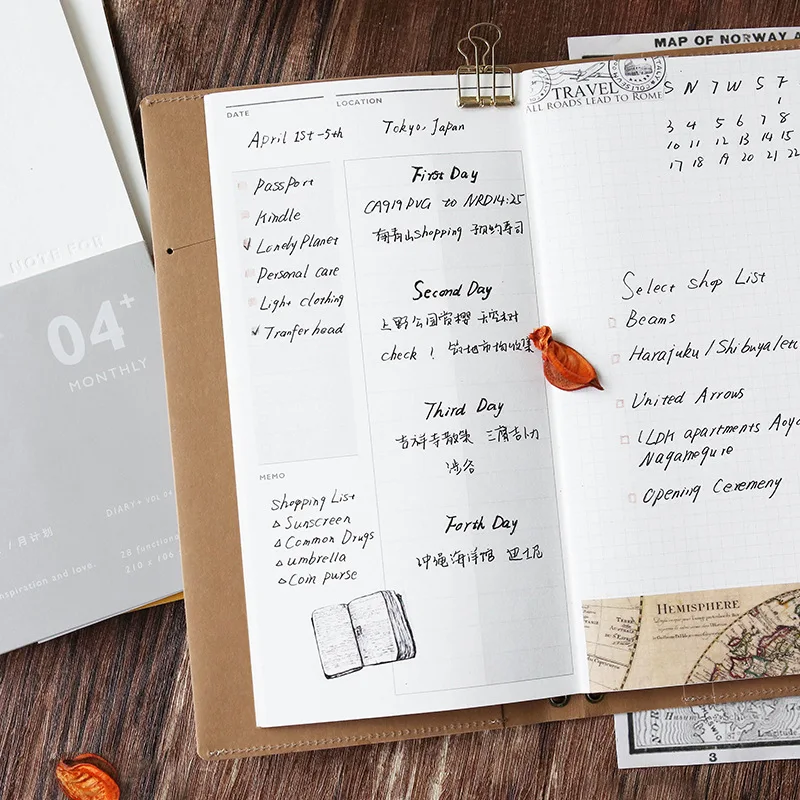 NOTE FOR
04+
MONTHLY
DIARY+ VOL.04
/ 月计划
28 function
210 x 106
nspiration and love.
DATE
LOCATION
April 1st-5th
Tokyo, Japan
Passport
Kindle
Lonely Planet
Personal care
Light clothing
Tranfer head
MEMO
Shopping List
Sunscreen
Common Drugs
umbrella
Coin purse
First Day
CA919 PVG to NRD14:25
南青山shopping 预约寿司
Second Day
上野公园赏樱 天空树
check! 筑地市场收集
Third Day
吉祥寺散策
涉谷
Forth Day
冲绳海洋馆 迪士尼
MAP OF NORWAY A
TRAVEL
ALL ROADS LEAD TO ROME
S N T W S F
1
3 4 5 6 7 8
10 11 12 13 14 15
17 18 19 20 21 22
Select Shop List
Beams
Harajuku / Shibuya
United Arrows
LDH apartments
Nagamegure
Opening Ceremeny
HEMISPHERE
3